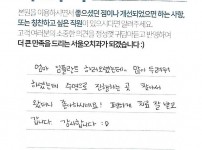 본원을 이용하시면서 좋으셨던 점이나 개선되었으면 하는 사항,
또는 칭찬하고 싶은 직원이 있으시다면 알려주세요.
고객 여러분의 소중한 의견을 정성껏 귀담아듣고 반영하여
더 큰 만족을 드리는 서울오치과가 되겠습니다 :)
엄마 임플란트 하러오셨는데 많이 두려워
하셨는데 수면으로 진행하는 곳 찾아서
왔더니 좋아하시네요! 편하게 치료 잘 받고
갑니다. 감사합니다 :D